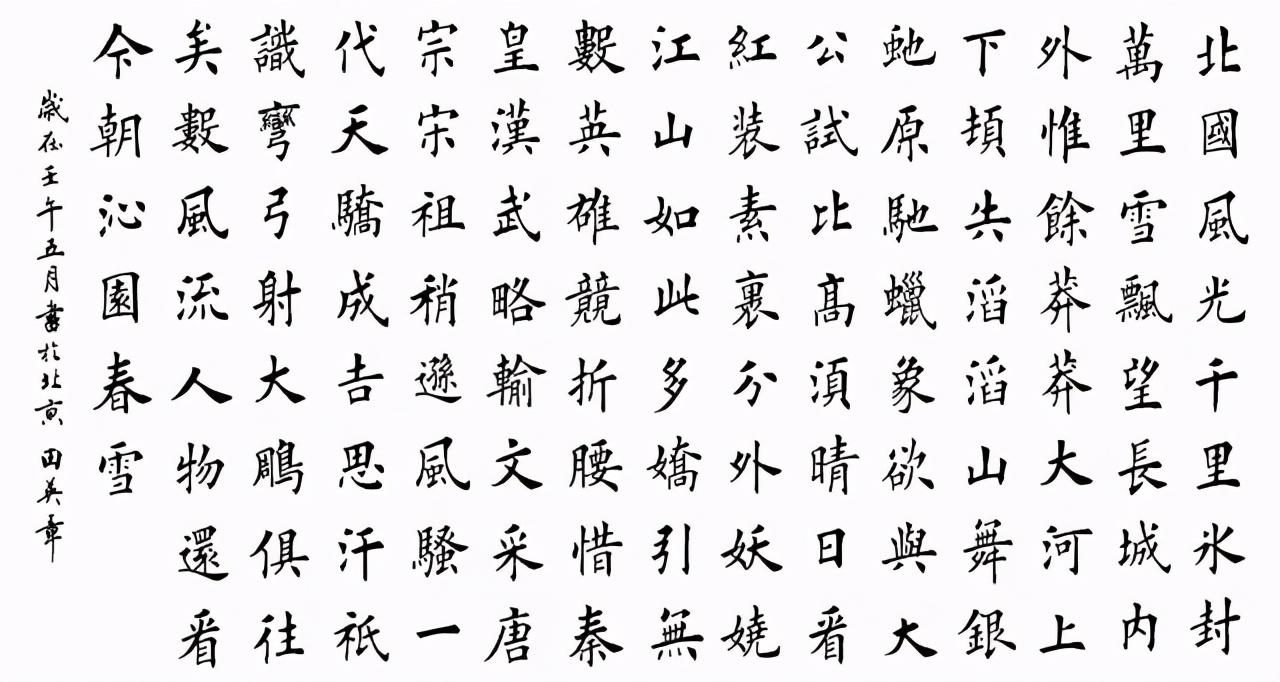 北國風光千里氷封
萬里雪飄望長城內
外惟餘莽莽大河上
下頓失滔滔山舞銀
虵原馳蠟象欲與大
公試比髙湏晴日看
紅装素裹分外妖嬈
江山如此多嬌引無
數英雄競折腰惜秦
皇漢武略輸文采唐
宗宋祖稍遜風騷一
代天驕成吉思汗祇
識彎弓射大鵰俱往
矣數風流人物還看
今朝沁園春雪
歲在壬午五月書於北京田英章